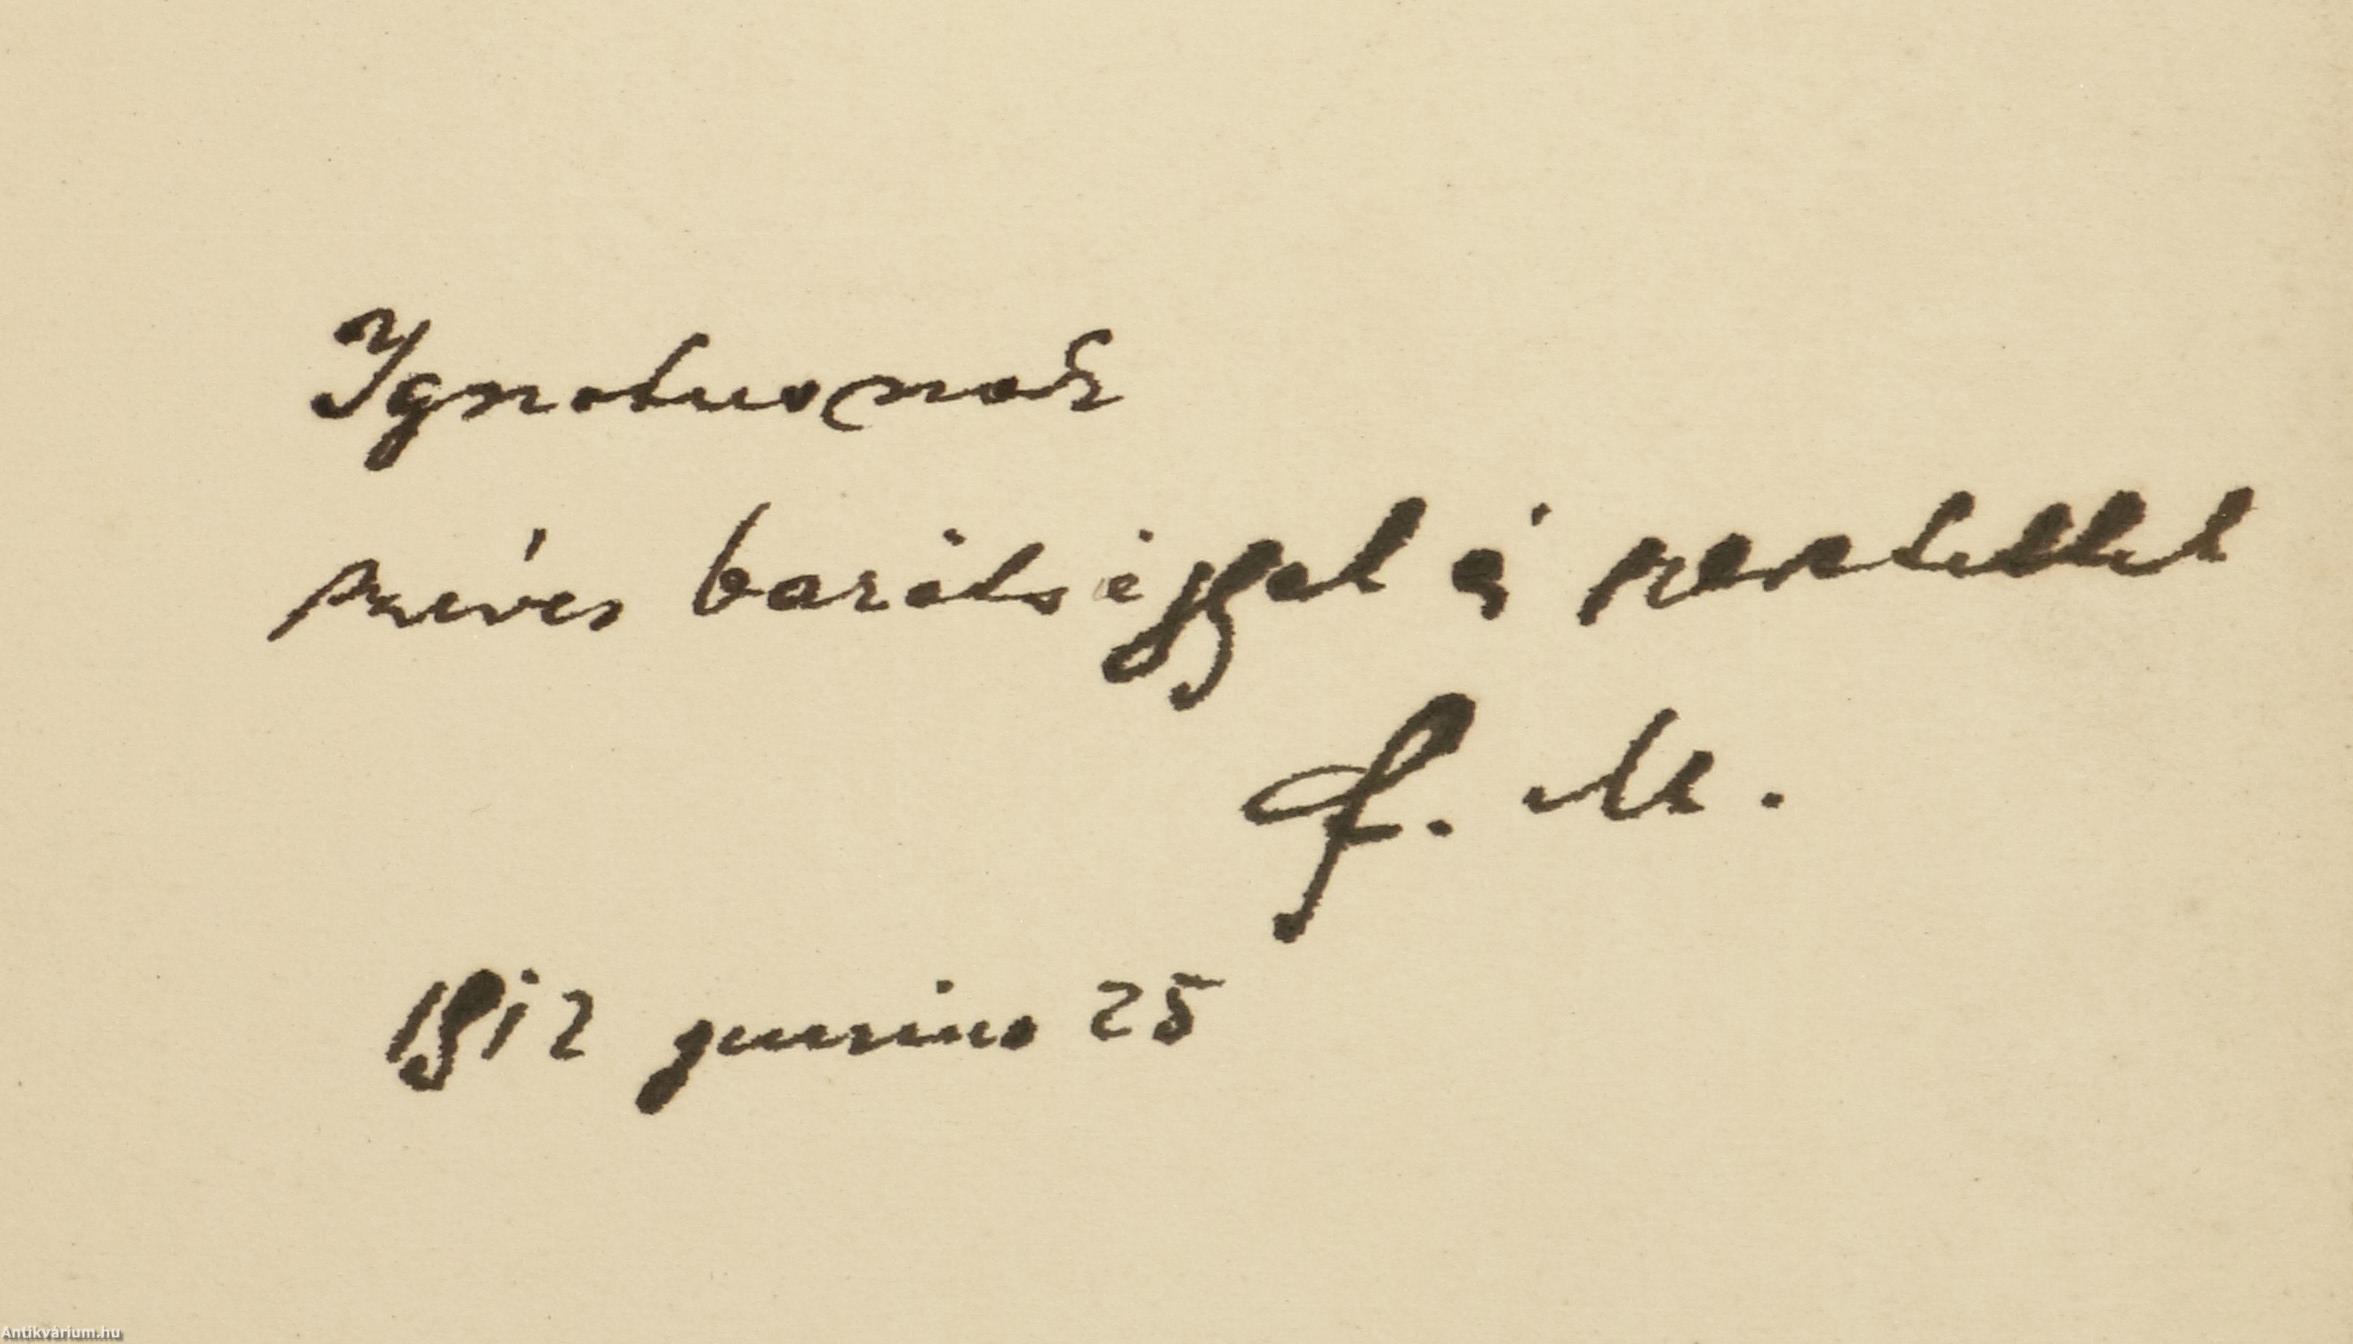 Ignotusnak
szíves barátsággal és szeretettel
F. M.
1912 junius 25
Antikvárium.hu